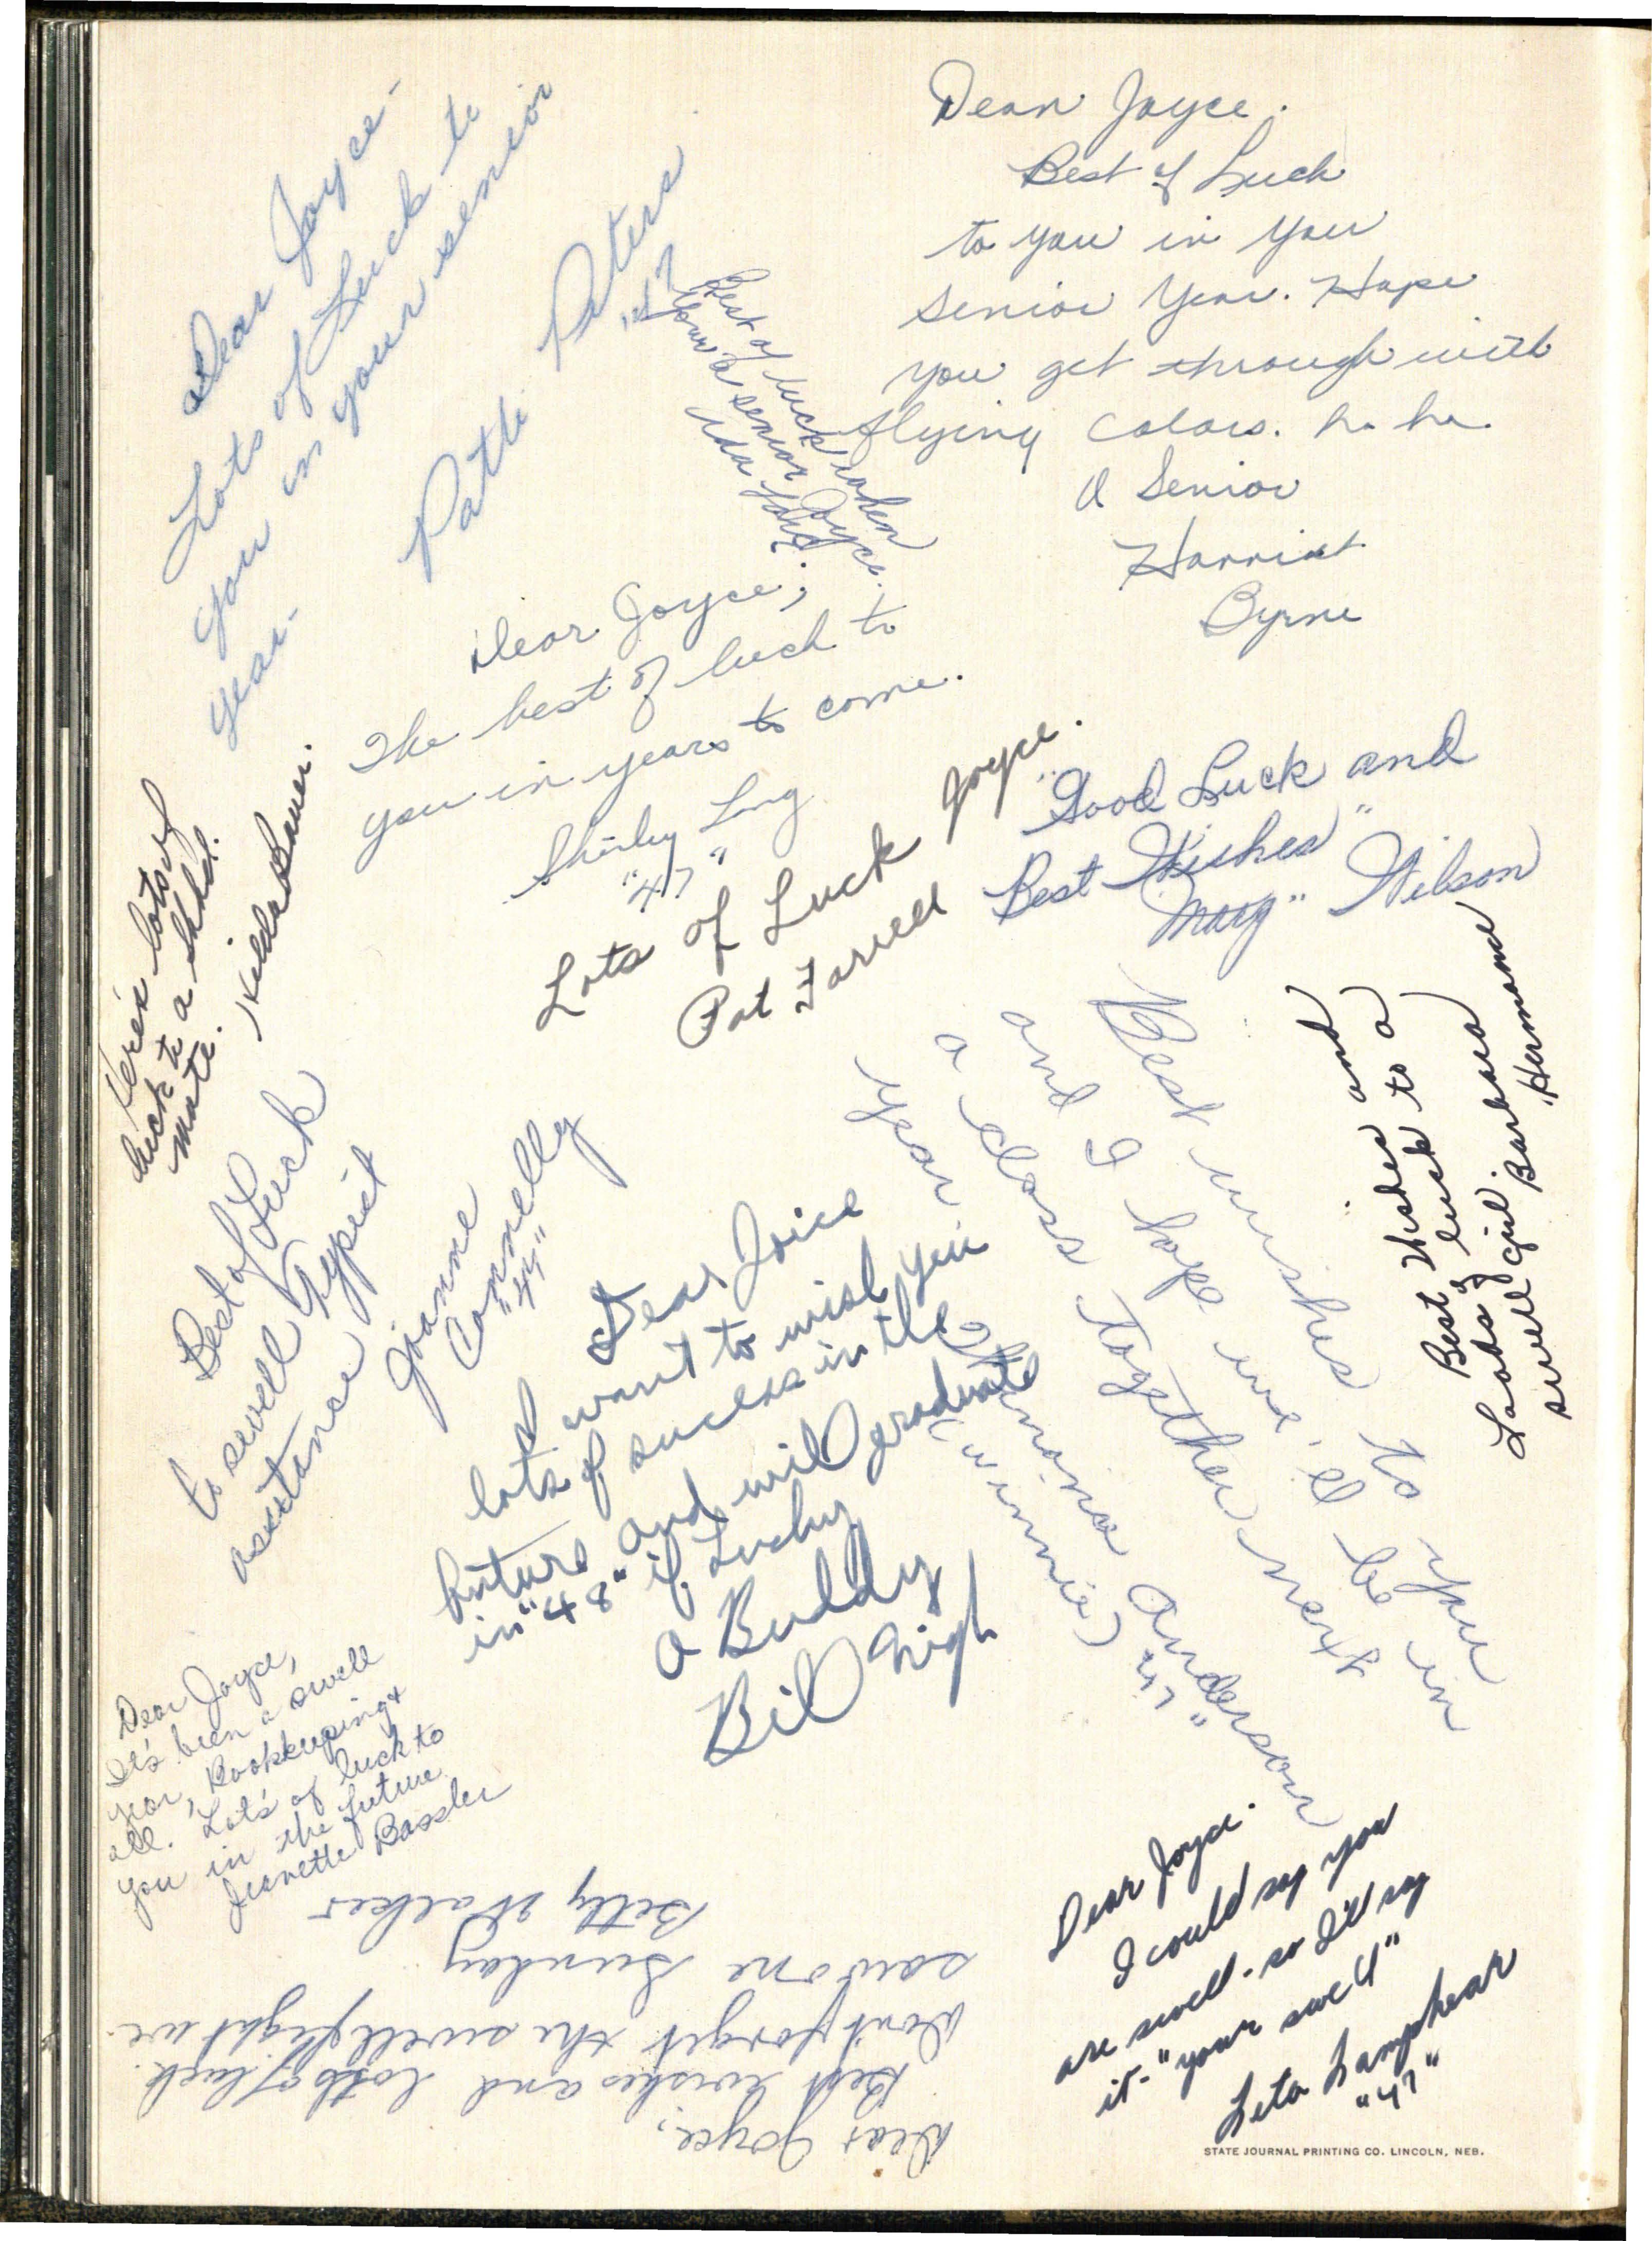 Dear Joyce-
Lots of Luck to
you in your senior
year-
Patti Peters
"47
Dear Joyce.
Best of Luck
to you in your
Senior Year. Hope
you get through with
flying Colors. ha ha.
A Senior
Harriet
Byrne
Best of luck when
your a senior Joyce.
Dear Joyce;
The best of luck to
you in years to come.
Shirley Long
"47"
Lots of Luck Joyce.
Pat Farrell
"Good Luck and
Best Wishes"
"Marg" Wilson
Here's lots of
luck to a
mate.
Best of Luck
to swell Typist
assitance
Joanne
Connelly
Best Wishes and
Loads of luck to a
swell girl. Barbara
Hermance
Best wishes to you
and I hope we'll be in
a class together next
year
Anderson
(Winnie) "47"
Dear Joice
I want to wish you
lots of success in the
future and will graduate
in "48" if Lucky
a Buddy
Bill High
Dear Joyce,
It's been a swell
year, Bookkeeping &
all. Lot's of luck to
you in the future
Jeanette Bassler
Dear Joyce.
I could say you
are swell - so I'll say
it - "your swell"
Leta Lamphear
"47"
Dear Joyce,
Best wishes and lots of luck.
Don't forget the swell fight we
saw one Sunday
Betty Walker
STATE JOURNAL PRINTING CO. LINCOLN, NEB.